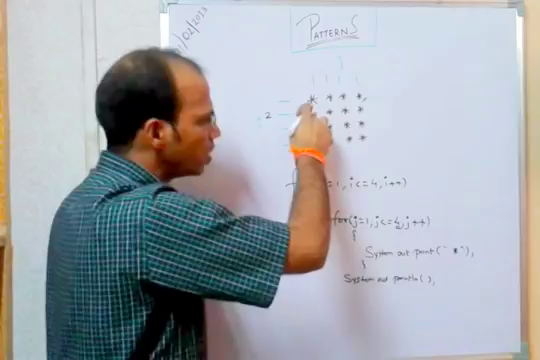 /02/2013
PATTERNS
* * * *
2 * * *
* *
* *
=1, i<=4, i++)
for(j=1, j<=4, j++)
{
System out print("*"),
}
System out println( ),